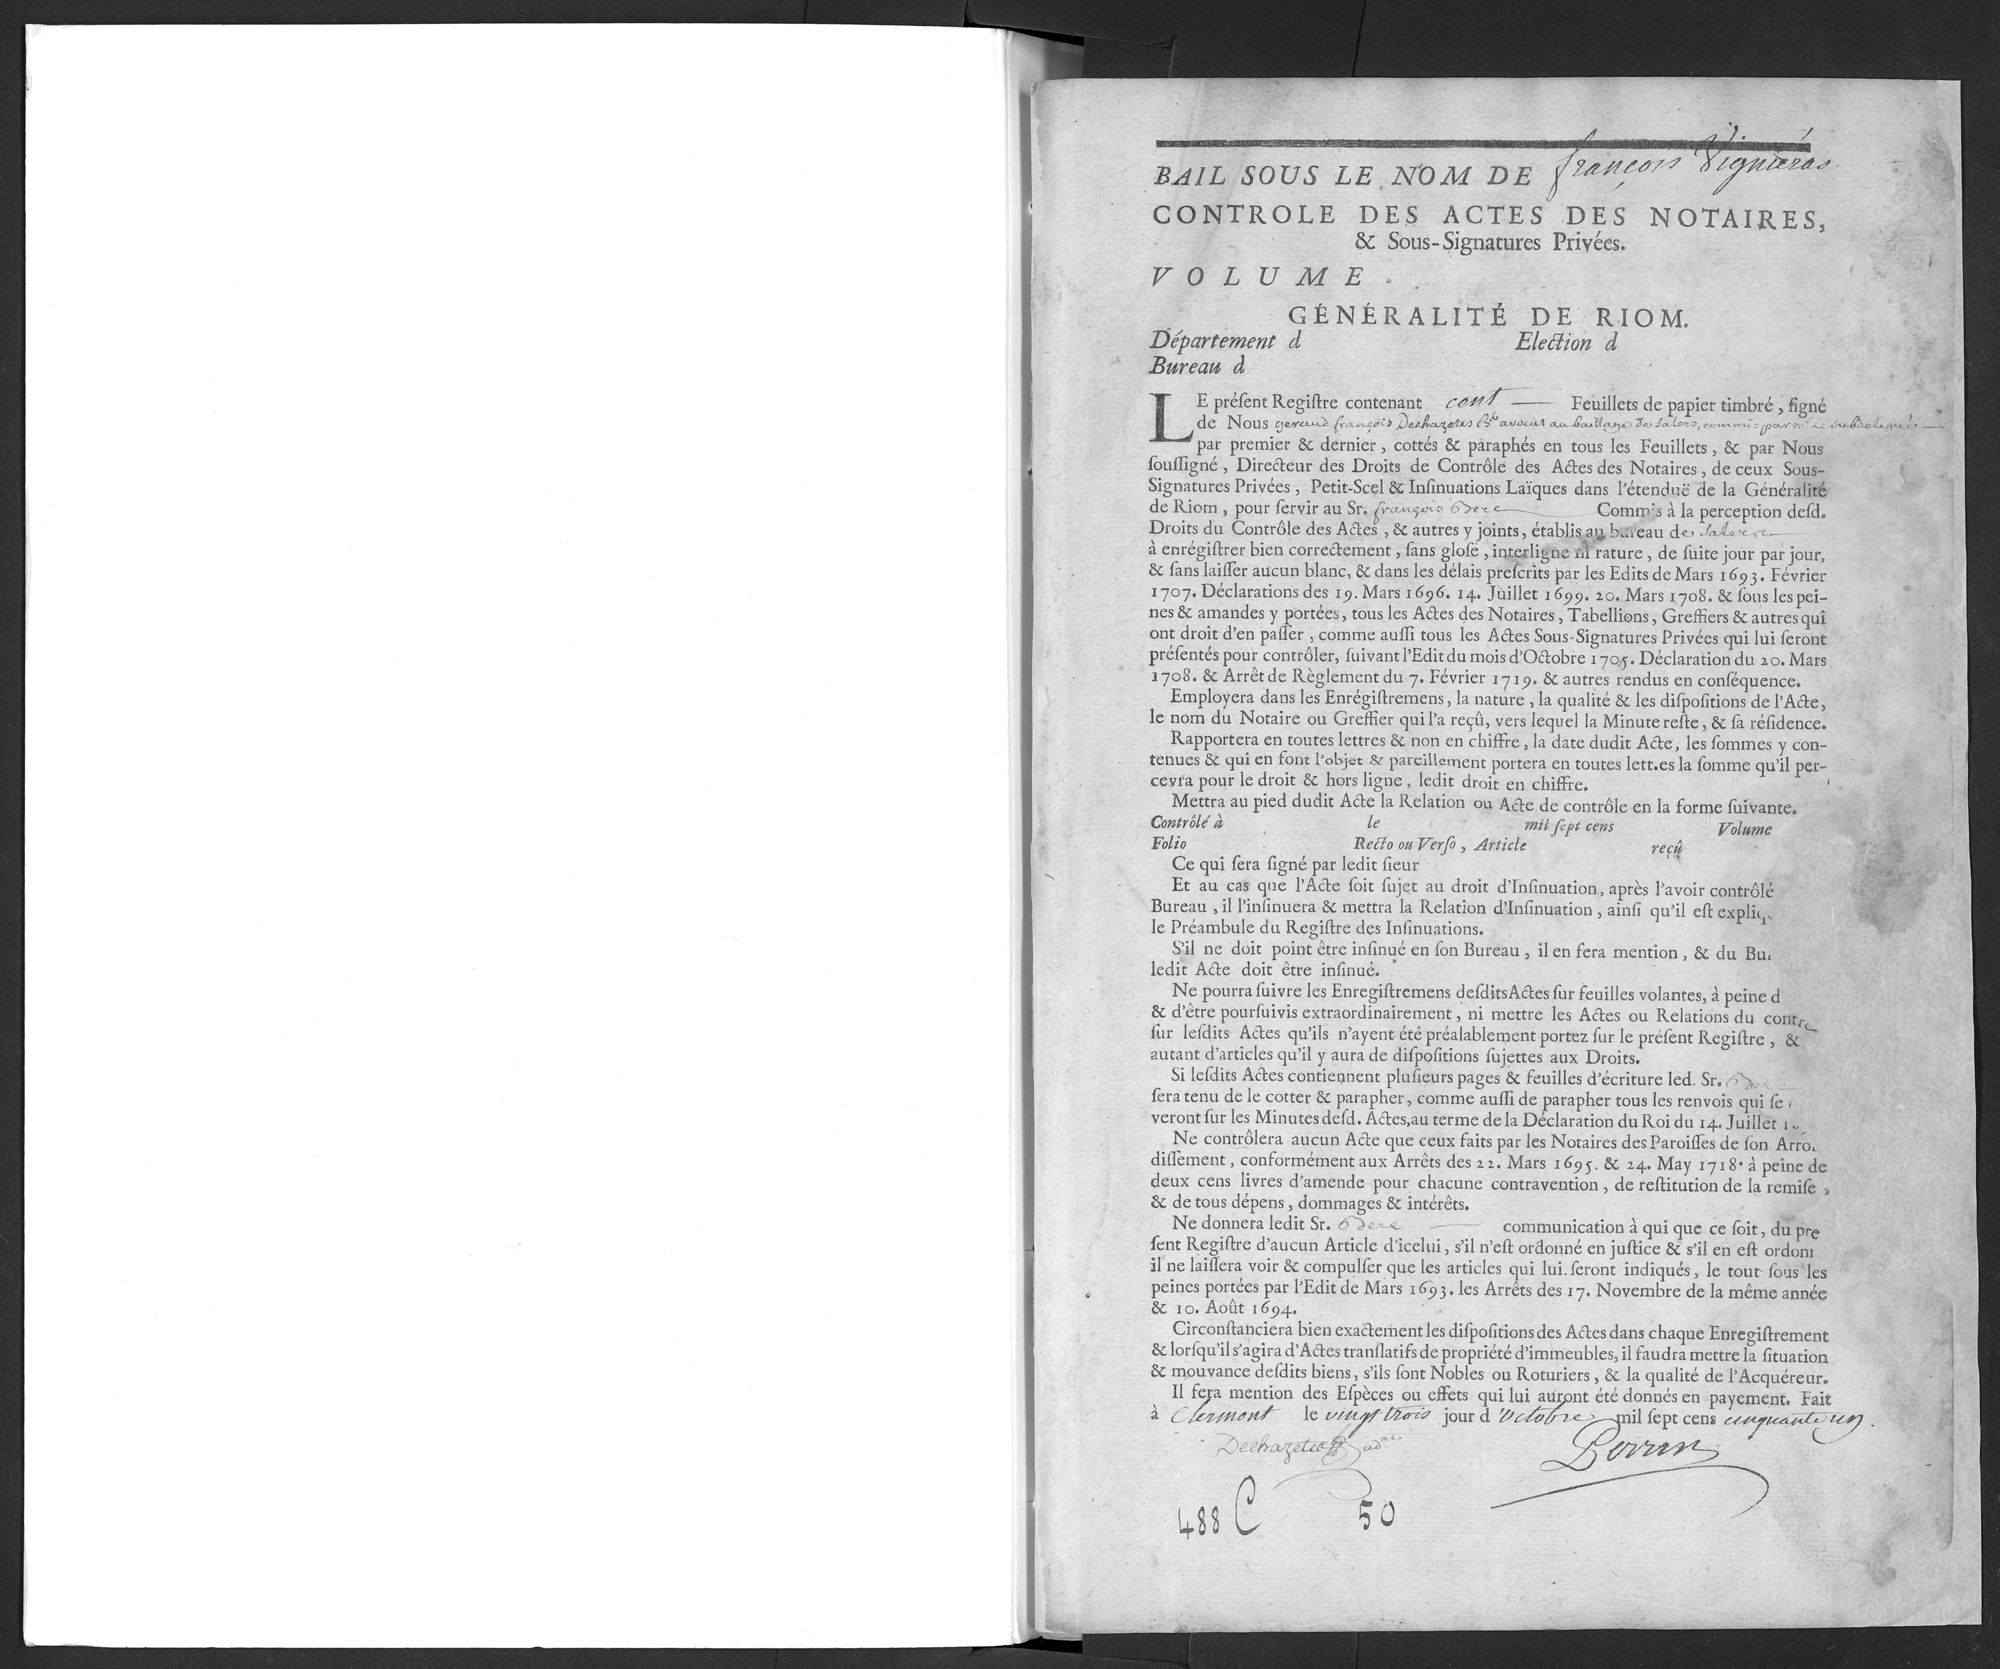 BAIL SOUS LE NOM DE françois Vignieras
CONTROLE DES ACTES DES NOTAIRES,
& Sous-Signatures Privées.
VOLUME
GÉNÉRALITÉ DE RIOM.
Département d Election d
Bureau d
LE préſent Regiſtre contenant cent — Feuillets de papier timbré, ſigné
de Nous geraud françois Dechazetes avocat au bailliage de Salers, commis par mr Le subdelegué —
par premier & dernier, cottés & paraphés en tous les Feuillets, & par Nous
ſouſſigné, Directeur des Droits de Contrôle des Actes des Notaires, de ceux Sous-
Signatures Privées, Petit-Scel & Inſinuations Laïques dans l'étenduë de la Généralité
de Riom, pour ſervir au Sr. françois Commis à la perception deſd.
Droits du Contrôle des Actes, & autres y joints, établis au bureau de Salers
à enrégiſtrer bien correctement, ſans gloſe, interligne ni rature, de ſuite jour par jour,
& ſans laiſſer aucun blanc, & dans les délais preſcrits par les Edits de Mars 1693. Février
1707. Déclarations des 19. Mars 1696. 14. Juillet 1699. 20. Mars 1708. & ſous les pei-
nes & amandes y portées, tous les Actes des Notaires, Tabellions, Greffiers & autres qui
ont droit d'en paſſer, comme auſſi tous les Actes Sous-Signatures Privées qui lui ſeront
préſentés pour contrôler, ſuivant l'Edit du mois d'Octobre 1705. Déclaration du 20. Mars
1708. & Arrêt de Règlement du 7. Février 1719. & autres rendus en conſéquence.
Employera dans les Enrégiſtremens, la nature, la qualité & les diſpoſitions de l'Acte,
le nom du Notaire ou Greffier qui l'a reçû, vers lequel la Minute reſte, & ſa réſidence.
Rapportera en toutes lettres & non en chiffre, la date dudit Acte, les ſommes y con-
tenues & qui en font l'objet & pareillement portera en toutes lett.es la ſomme qu'il per-
cevra pour le droit & hors ligne, ledit droit en chiffre.
Mettra au pied dudit Acte la Relation ou Acte de contrôle en la forme ſuivante.
Contrôlé à le mil ſept cens Volume
Folio Recto ou Verſo, Article reçû
Ce qui ſera ſigné par ledit ſieur
Et au cas que l'Acte ſoit ſujet au droit d'Inſinuation, après l'avoir contrôlé
Bureau, il l'inſinuera & mettra la Relation d'Inſinuation, ainſi qu'il eſt expliq
le Préambule du Regiſtre des Inſinuations.
S'il ne doit point être inſinué en ſon Bureau, il en fera mention, & du Bu
ledit Acte doit être inſinué.
Ne pourra ſuivre les Enregiſtremens deſdits Actes ſur feuilles volantes, à peine d
& d'être pourſuivis extraordinairement, ni mettre les Actes ou Relations du contre
ſur leſdits Actes qu'ils n'ayent été préalablement portez ſur le préſent Regiſtre, &
autant d'articles qu'il y aura de diſpoſitions ſujettes aux Droits.
Si leſdits Actes contiennent pluſieurs pages & feuilles d'écriture led. Sr.
ſera tenu de le cotter & parapher, comme auſſi de parapher tous les renvois qui ſe
veront ſur les Minutes deſd. Actes, au terme de la Déclaration du Roi du 14. Juillet
Ne contrôlera aucun Acte que ceux faits par les Notaires des Paroiſſes de ſon Arro
diſſement, conformément aux Arrêts des 22. Mars 1695. & 24. May 1718. à peine de
deux cens livres d'amende pour chacune contravention, de reſtitution de la remiſe,
& de tous dépens, dommages & intérêts.
Ne donnera ledit Sr. — communication à qui que ce ſoit, du pre
ſent Regiſtre d'aucun Article d'icelui, s'il n'eſt ordonné en juſtice & s'il en eſt ordon
il ne laiſſera voir & compulſer que les articles qui lui ſeront indiqués, le tout ſous les
peines portées par l'Edit de Mars 1693. les Arrêts des 17. Novembre de la même année
& 10. Août 1694.
Circonſtanciera bien exactement les diſpoſitions des Actes dans chaque Enregiſtrement
& lorſqu'il s'agira d'Actes tranſlatifs de propriété d'immeubles, il faudra mettre la ſituation
& mouvance deſdits biens, s'ils ſont Nobles ou Roturiers, & la qualité de l'Acquéreur.
Il fera mention des Eſpèces ou effets qui lui auront été donnés en payement. Fait
à Clermont le vingt trois jour d'octobre mil ſept cens cinquante un.
Dechazetes Perrin
488 C 50